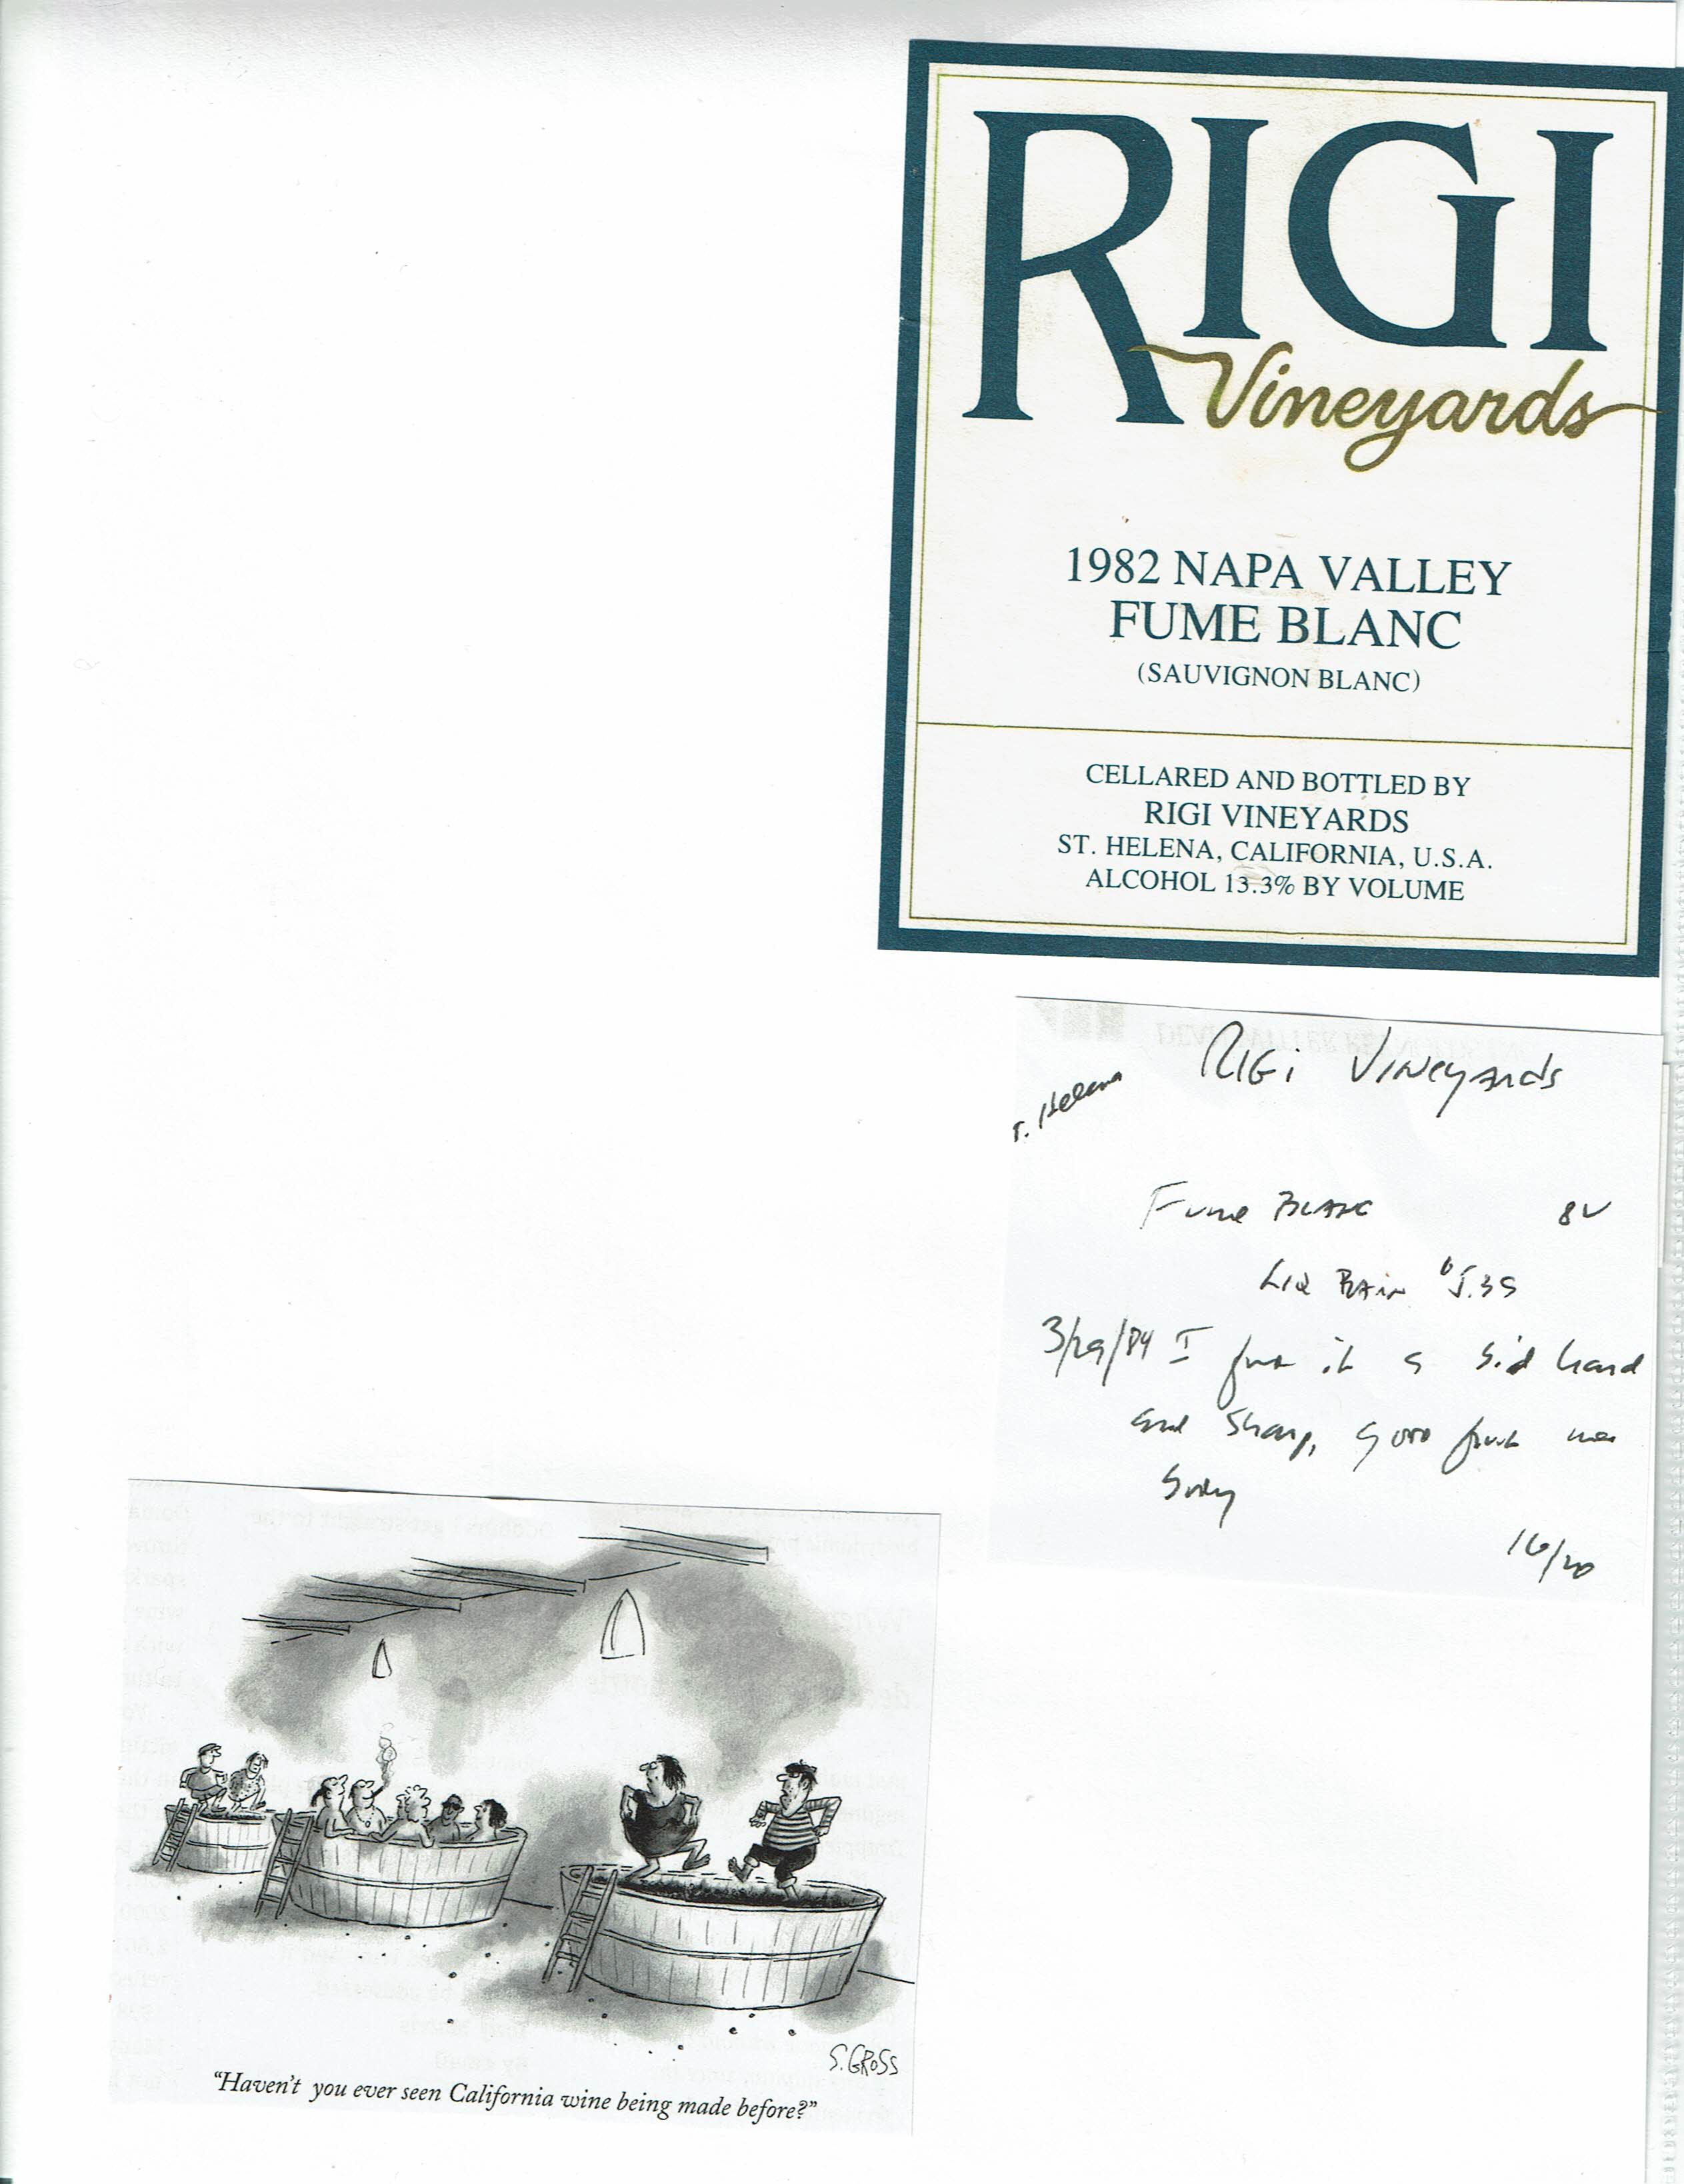 RIGI
Vineyards
1982 NAPA VALLEY
FUME BLANC
(SAUVIGNON BLANC)
CELLARED AND BOTTLED BY
RIGI VINEYARDS
ST. HELENA, CALIFORNIA, U.S.A.
ALCOHOL 13.3% BY VOLUME
RIGi Vineyards
T. Helena
Fume BLANC 82
LIQ BARN $5.39
3/29/84 I it a hard
and sharp, good
body
16/20
S.GROSS
"Haven't you ever seen California wine being made before?"